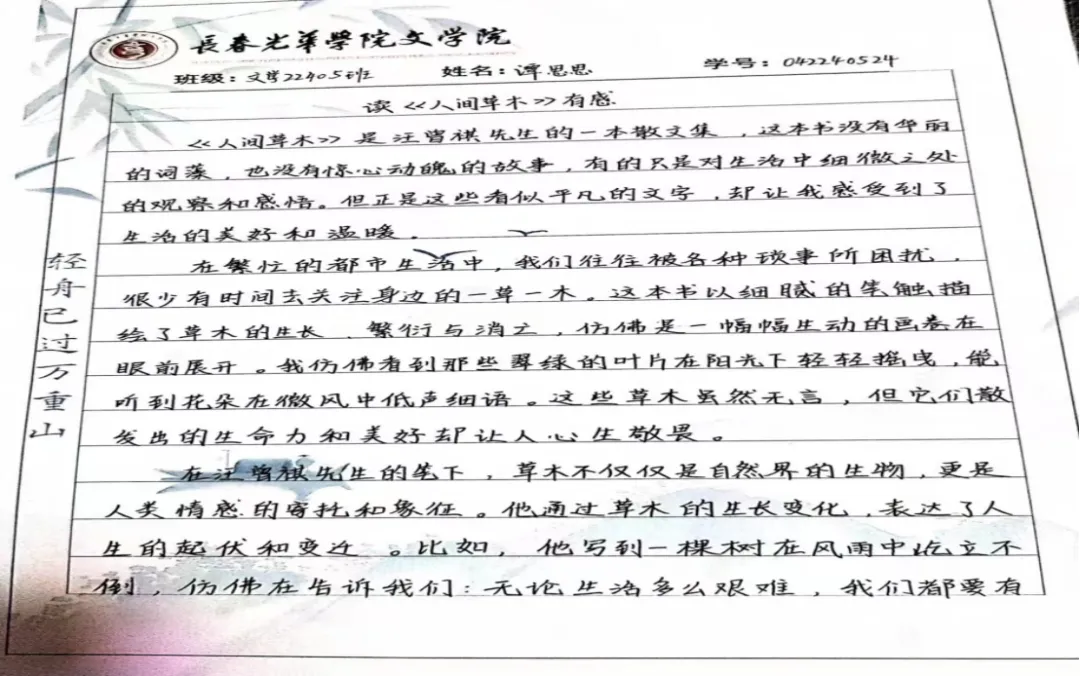 長春光華學院文学院
班级：文学22405班 姓名：谭思思 学号：042240524
读《人间草木》有感
《人间草木》是汪曾祺先生的一本散文集，这本书没有华丽
的词藻，也没有惊心动魄的故事，有的只是对生活中细微之处
的观察和感悟。但正是这些看似平凡的文字，却让我感受到了
生活的美好和温暖。
在繁忙的都市生活中，我们往往被各种琐事所困扰，
很少有时间去关注身边的一草一木。这本书以细腻的笔触描
绘了草木的生长、繁衍与消亡，仿佛是一幅幅生动的画卷在
眼前展开。我仿佛看到那些翠绿的叶片在阳光下轻轻摇曳，能
听到花朵在微风中低声细语。这些草木虽然无言，但它们散
发出的生命力和美好却让人心生敬畏。
在汪曾祺先生的笔下，草木不仅仅是自然界的生物，更是
人类情感的寄托和象征。他通过草木的生长变化，表达了人
生的起伏和变迁。比如，他写到一棵树在风雨中屹立不
倒，仿佛在告诉我们：无论生活多么艰难，我们都要有
轻舟已过万重山